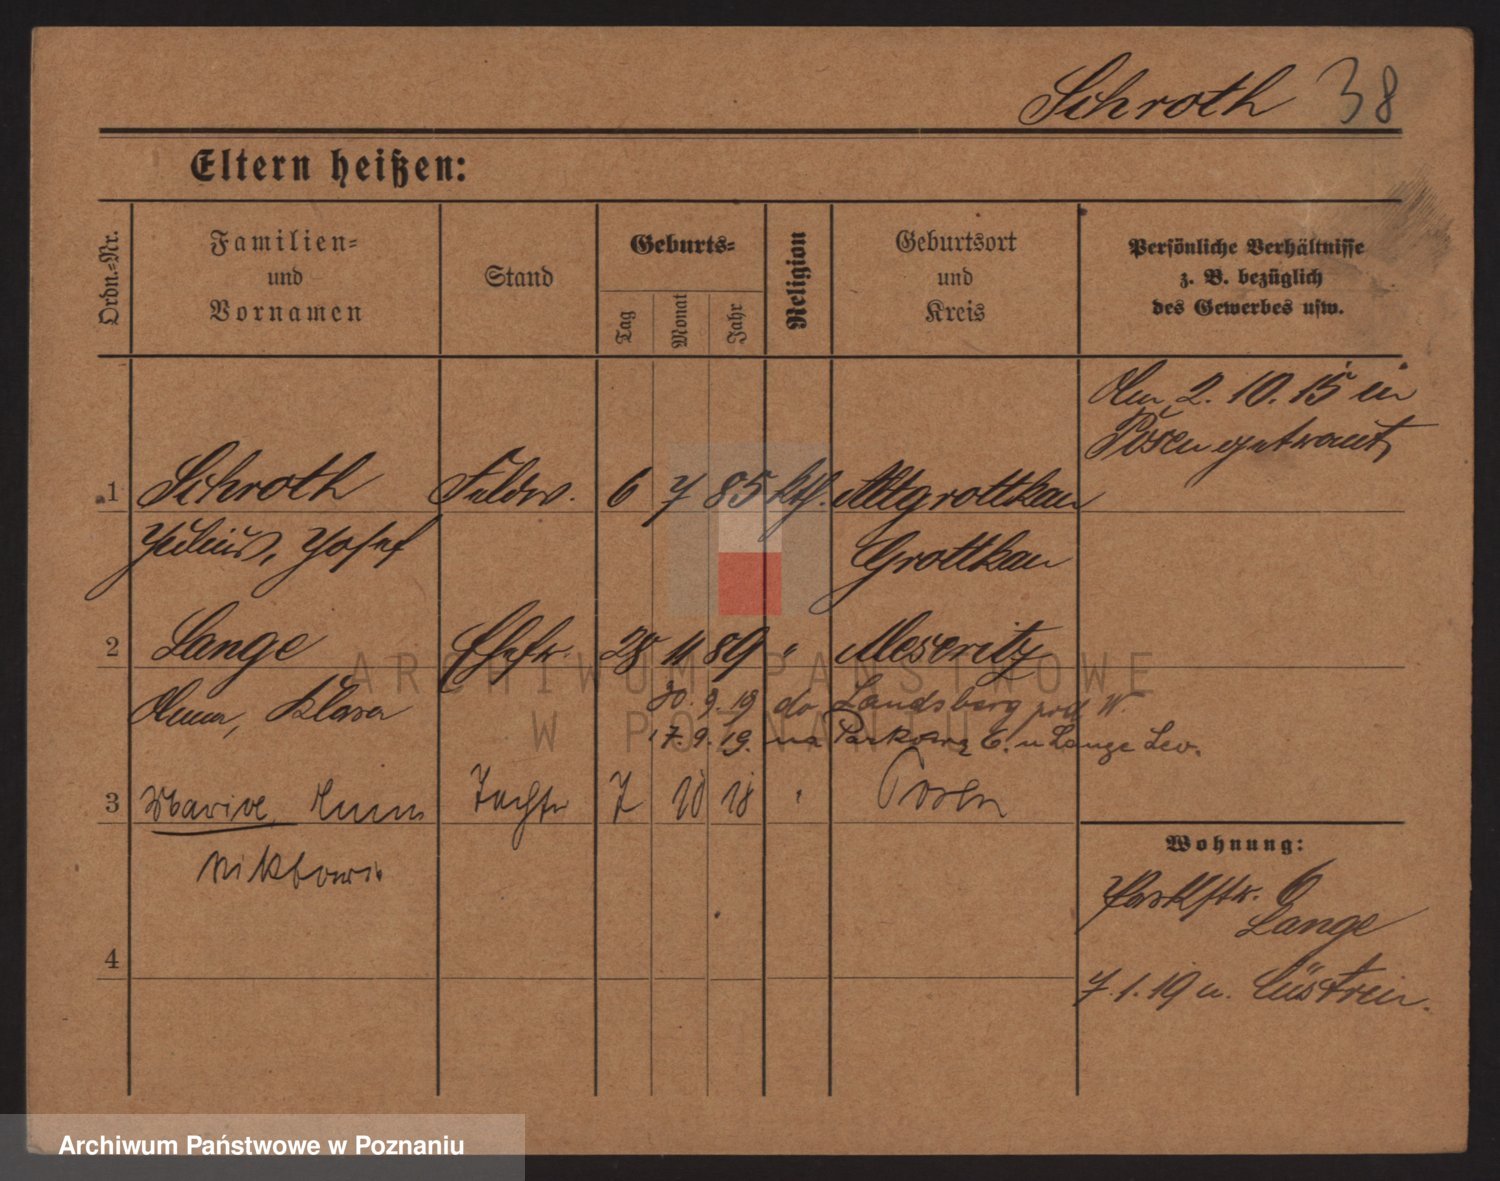 Schroth 38
Eltern heißen:
Ordn.-Nr.
Familien-
und
Vornamen
Stand
Geburts-
Tag
Monat
Jahr
Religion
Geburtsort
und
Kreis
Persönliche Verhältnisse
z. B. bezüglich
des Gewerbes usw.
Am 2. 10. 15 in
Posen getraut
1 Schroth Feldw. 6 7 85 kth. Altgrottkau
Julius, Josef Grottkau
2 Lange Ehefr. 28 11 89 " Meseritz
Anna, Klara
30. 9. 19 do Landsberg W.
17. 9. 19. na Parkową 6. u Lange Leo.
3 Marie Anna Tochter 7 10 18 " Posen
4
Wohnung:
Parkstr. 6
Lange
7. 1. 19 n. Cüstrin.
ARCHIWUM PAŃSTWOWE
W POZNANIU
Archiwum Państwowe w Poznaniu